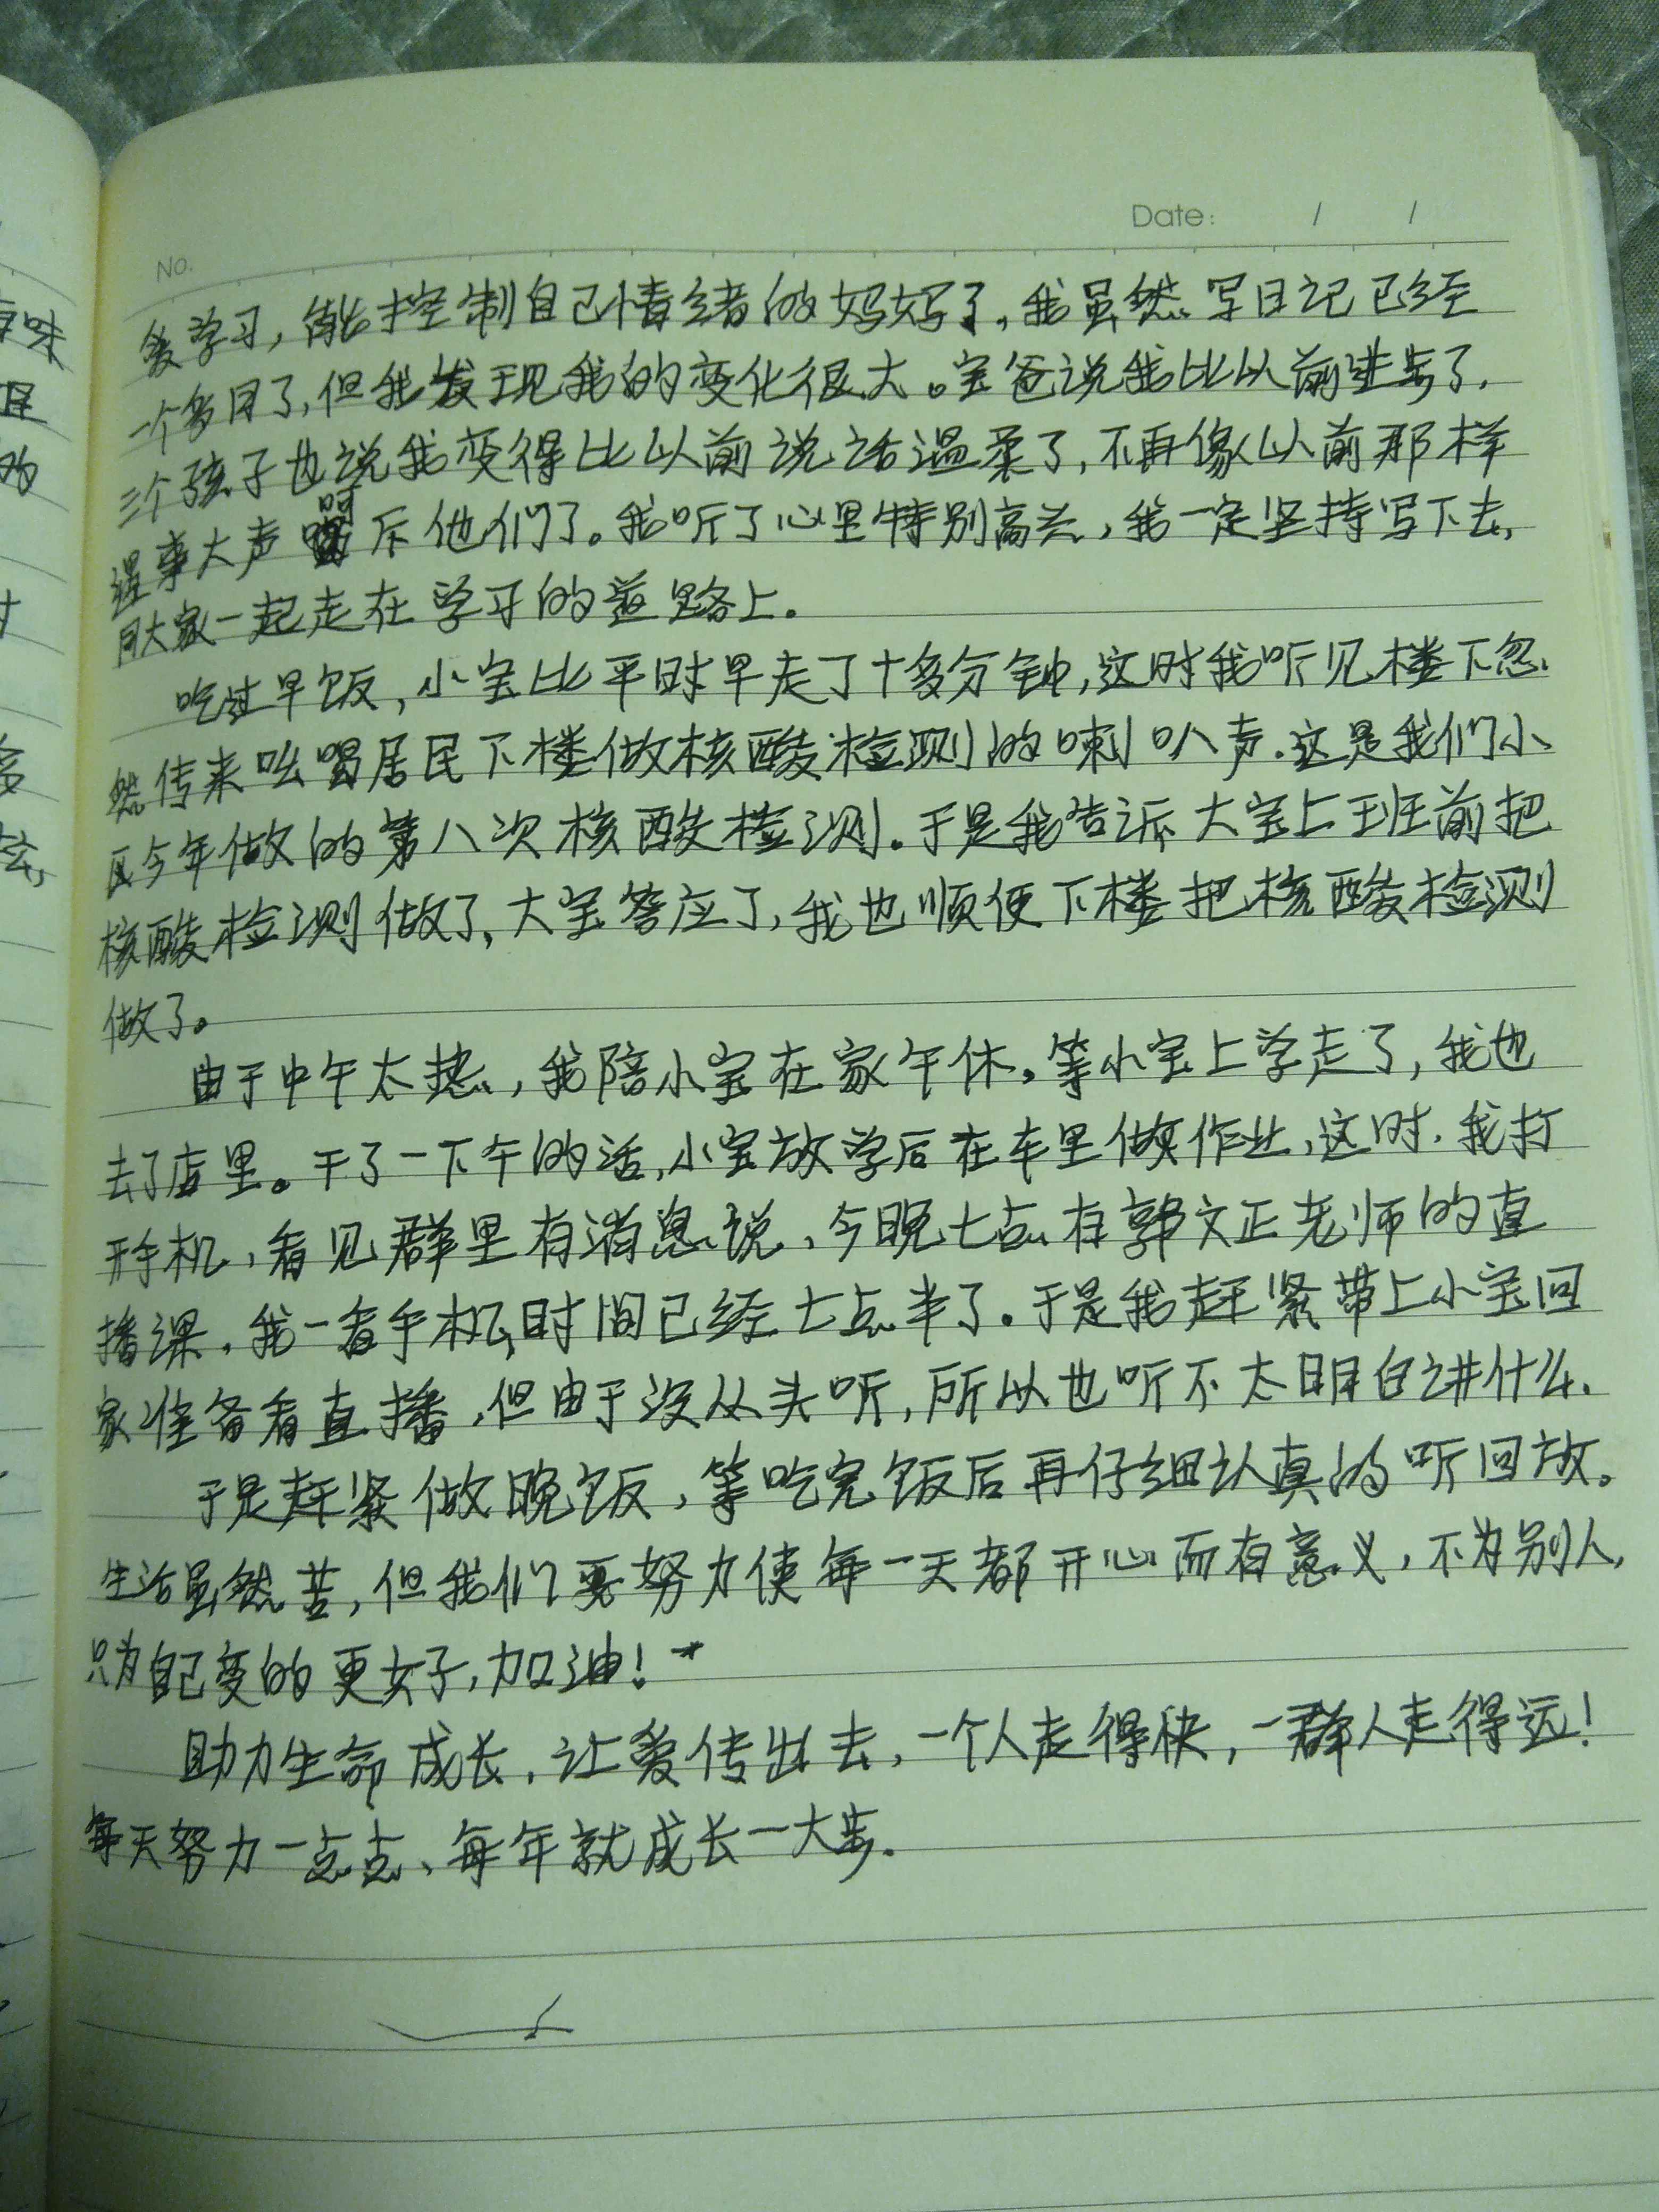 No.
Date: / /
爱学习,能控制自己情绪的妈妈了,我虽然写日记已经
一个多月了,但我发现我的变化很大。宝爸说我比以前进步了.
三个孩子也说我变得比以前说话温柔了,不再像以前那样
遇事大声呵斥他们了。我听了心里特别高兴,我一定坚持写下去,
同大家一起走在学习的道路上.
吃过早饭,小宝比平时早走了十多分钟,这时我听见楼下忽
然传来吆喝居民下楼做核酸检测的喇叭声.这是我们小
区今年做的第八次核酸检测.于是我告诉大宝上班前把
核酸检测做了,大宝答应了,我也顺便下楼把核酸检测
做了。
由于中午太热,我陪小宝在家午休,等小宝上学走了,我也
去了店里。干了一下午的活,小宝放学后在车里做作业,这时,我打
开手机,看见群里有消息说,今晚七点有郭文正老师的直
播课,我一看手机时间已经七点半了.于是我赶紧带上小宝回
家准备看直播,但由于没从头听,所以也听不太明白讲什么.
于是赶紧做晚饭,等吃完饭后再仔细认真的听回放。
生活虽然苦,但我们要努力使每一天都开心而有意义,不为别人,
只为自己变的更好,加油!
助力生命成长,让爱传出去,一个人走得快,一群人走得远!
每天努力一点点、每年就成长一大步.